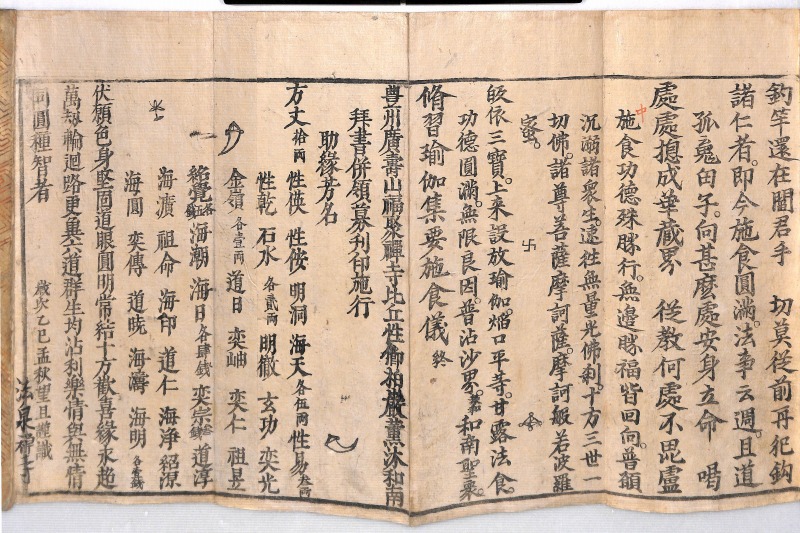 鈎竿還在閻君手　切莫從前再犯鈎
諸仁者。即今施食圓滿。法事云週。且道
孤䰟由子。向甚麼處安身立命　喝
處處揔成華藏界　從教何處不毘盧
中
施食功德殊勝行。無邊勝福皆回向。普願
沉溺諸衆生。速往無量光佛刹。十方三世一
切佛。諸尊菩薩摩訶薩。摩訶般若波羅
蜜。
卍
皈依三寶。上來設放瑜伽焰口平等。甘露法食
功德圓滿。無限良因。普沾沙界。和南聖衆。
脩習瑜伽集要施食儀 終
豊州廣壽山福聚禪寺比丘性
薰沐和南
拜書併領募刋印施行
助緣芳名
方丈 拾兩 性侠 性侒 明洞 海天 各伍兩 性易 叁兩
性乾 石水 各貳兩 明徹 玄功 奕光
金嶺 各壹兩 道日 奕岫 奕仁 祖昱
紹覺 海潮 海日 各肆錢 奕宗 道淳
海濱 祖命 海印 道仁 海净 紹源
海圓 奕傳 道晄 海濤 海明
伏願色身堅固道眼圓明常結十方歡喜緣永超
萬刼輪迴路更兾六道群生均沾利樂情與無情
同圓種智者
歳次乙巳孟秋望旦謹識
法泉禅寺